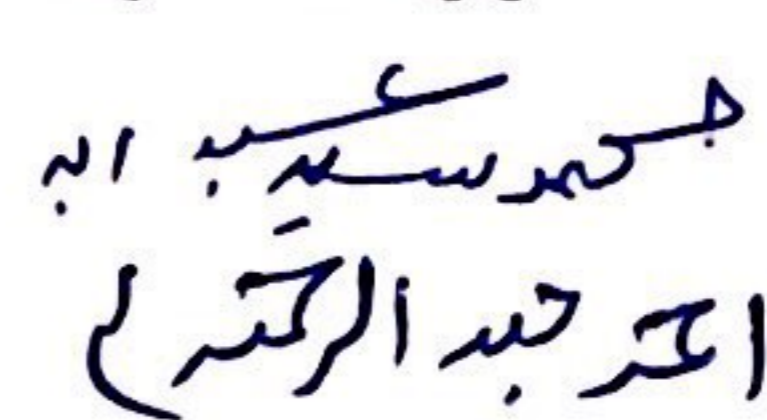 محمد سعيد عبد اله
احمد عبد الرحمن